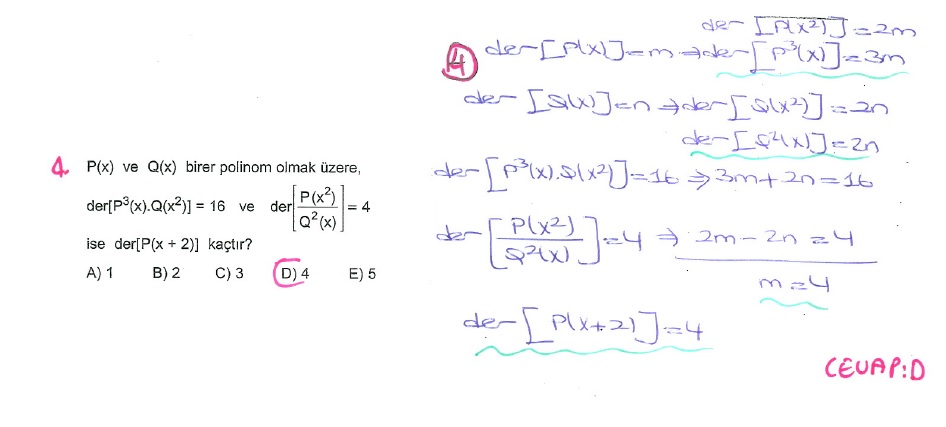 4. P(x) ve Q(x) birer polinom olmak üzere,
der[P³(x).Q(x²)] = 16 ve der[P(x²)/Q²(x)] = 4
ise der[P(x + 2)] kaçtır?
A) 1 B) 2 C) 3 D) 4 E) 5
4
der [P(x²)] = 2m
der [P(x)] = m ⇒ der [P³(x)] = 3m
der [Q(x)] = n ⇒ der [Q(x²)] = 2n
der [Q²(x)] = 2n
der [P³(x).Q(x²)] = 16 ⇒ 3m + 2n = 16
der [P(x²)/Q²(x)] = 4 ⇒ 2m - 2n = 4
m = 4
der [P(x+2)] = 4
CEVAP:D